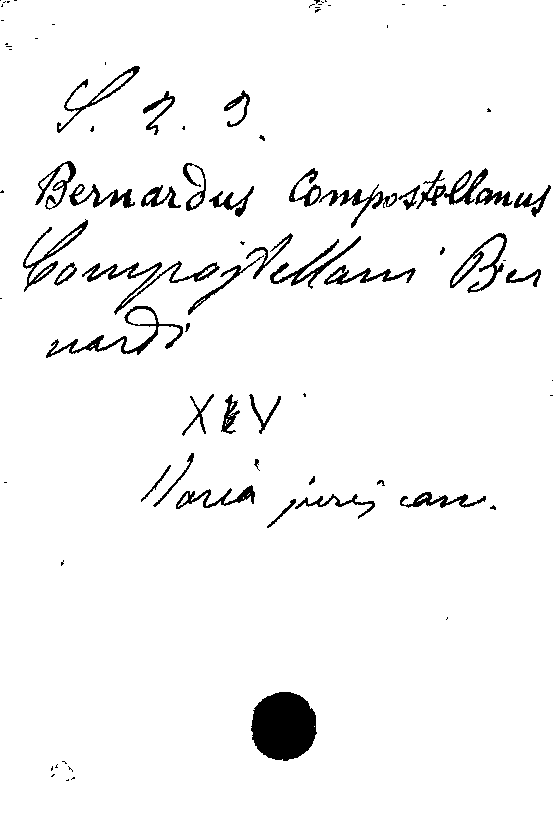 S. 2. 3.
Bernardus Compostellanus
Compostellani Ber
nardi
XIV
Varia juris can.